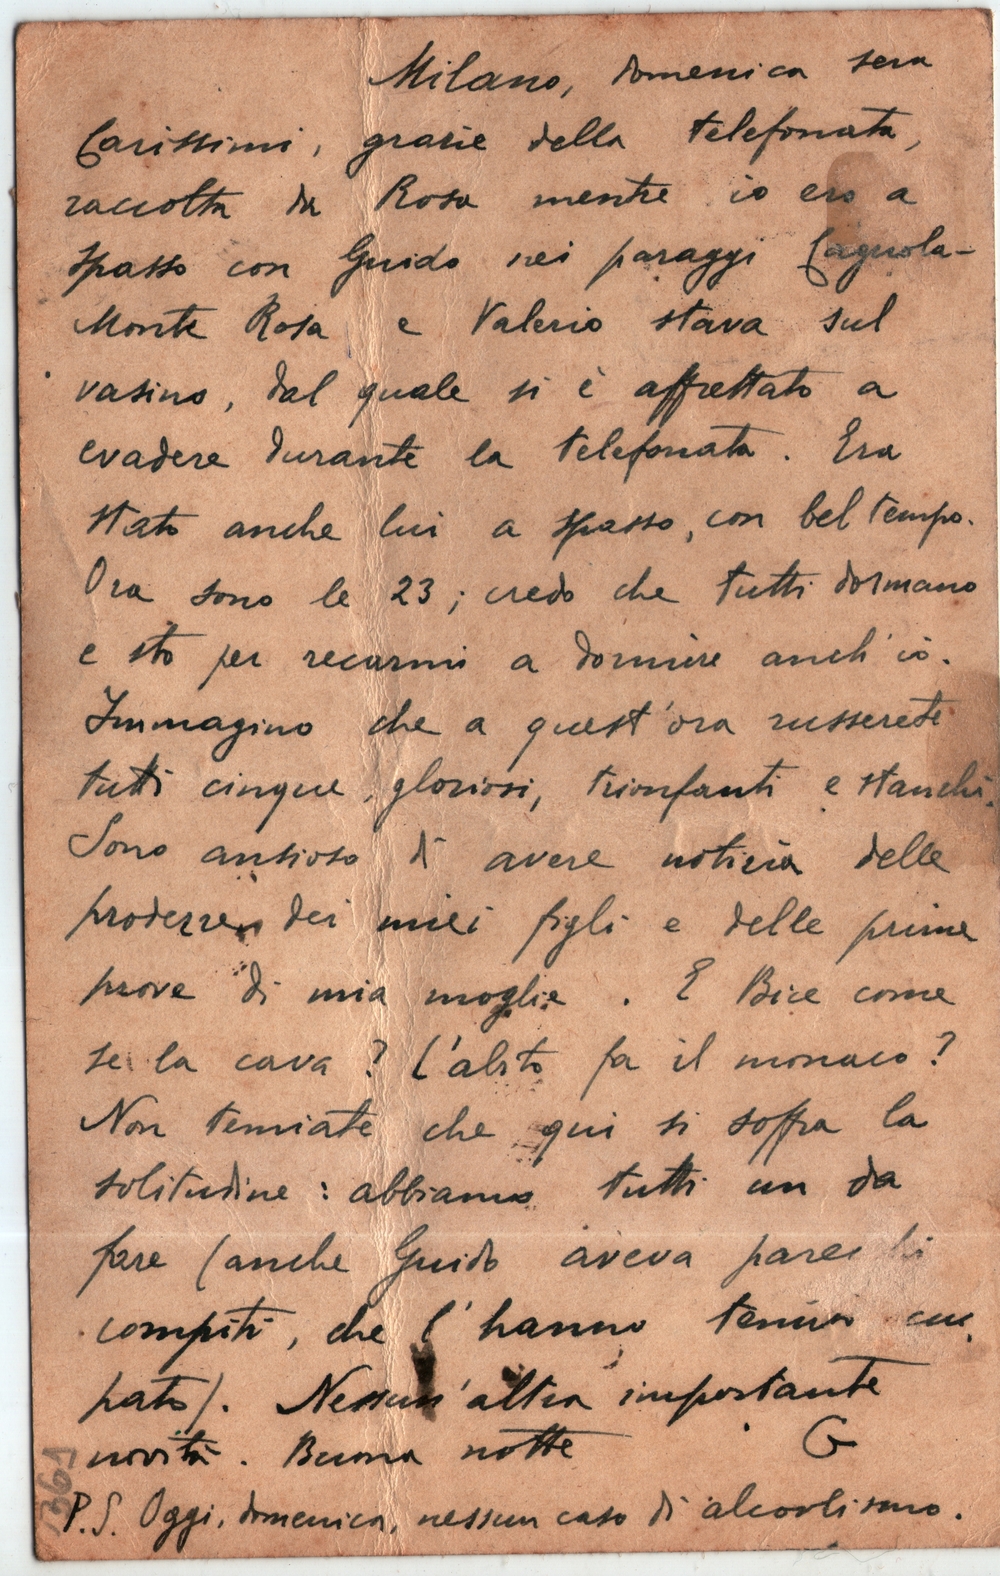 Milano, domenica sera
Carissimi, grazie della telefonata,
raccolta da Rosa mentre io ero a
spasso con Guido nei paraggi Cagnola-
Monte Rosa e Valerio stava sul
vasino, dal quale si è affrettato a
evadere durante la telefonata. Era
stato anche lui a spasso, con bel tempo.
Ora sono le 23; credo che tutti dormano
e sto per recarmi a dormire anch'io.
Immagino che a quest'ora russerete
tutti cinque, gloriosi, trionfanti e stanchi.
Sono ansioso di avere notizia delle
prodezze dei miei figli e delle prime
prove di mia moglie. E Bice come
se la cava? L'abito fa il monaco?
Non temiate che qui si soffra la
solitudine: abbiamo tutti un da
fare (anche Guido aveva parecchi
compiti, che l'hanno tenuto occu
pato). Nessun'altra importante
novità. Buona notte G
P.S. Oggi, domenica, nessun caso di alcoolismo.
361